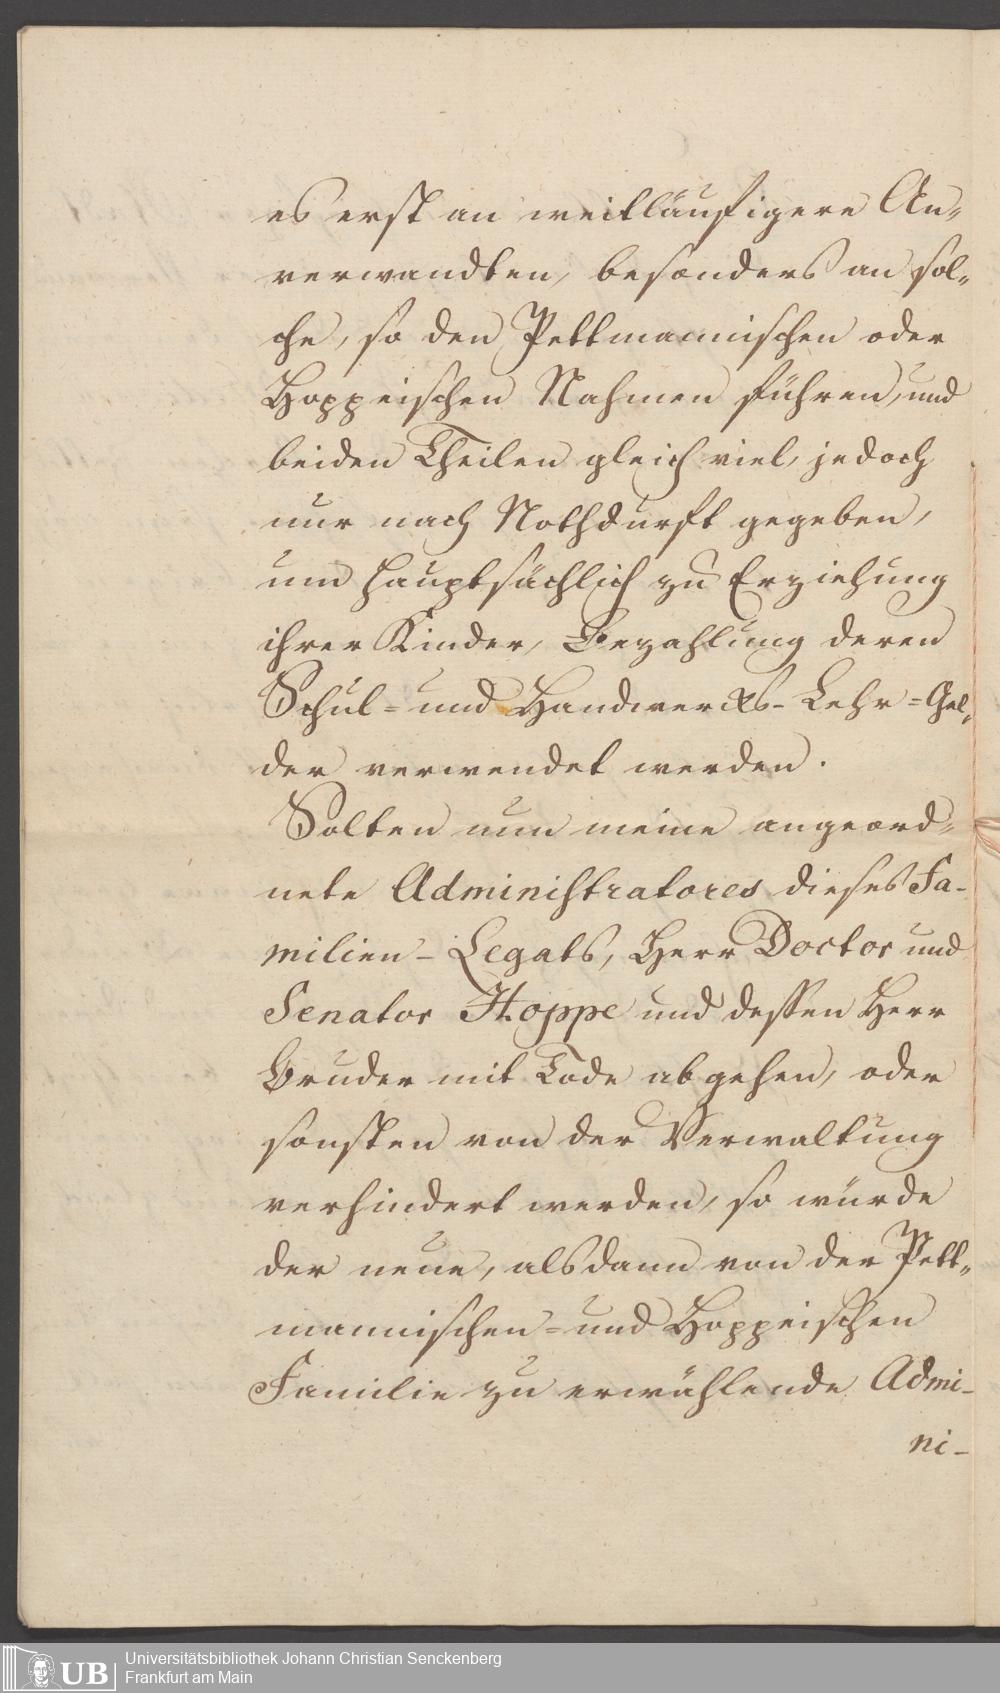 es erst an weitläufigere An-
verwandten, besonders an sol-
che, so den Pettmannischen oder
Hoppeischen Nahmen führen, und
beiden Theilen gleich viel, jedoch
nur nach Nothdurft gegeben,
um hauptsächlich zu Erziehung
ihrer Kinder, Bezahlung deren
Schul- und Handwercks-Lehr-Gel-
der verwendet werden.
Solten nun meine angeord-
nete Administratores dieses Fa-
milien-Legats, Herr Doctor und
Senator Hoppe und dessen Herr
Bruder mit Tode abgehen, oder
sonsten von der Verwaltung
verhindert werden, so würde
der neue, alsdann von der Pett-
mannischen- und Hoppeischen
Familie zu erwählende Admi-
ni-
UB
Universitätsbibliothek Johann Christian Senckenberg
Frankfurt am Main